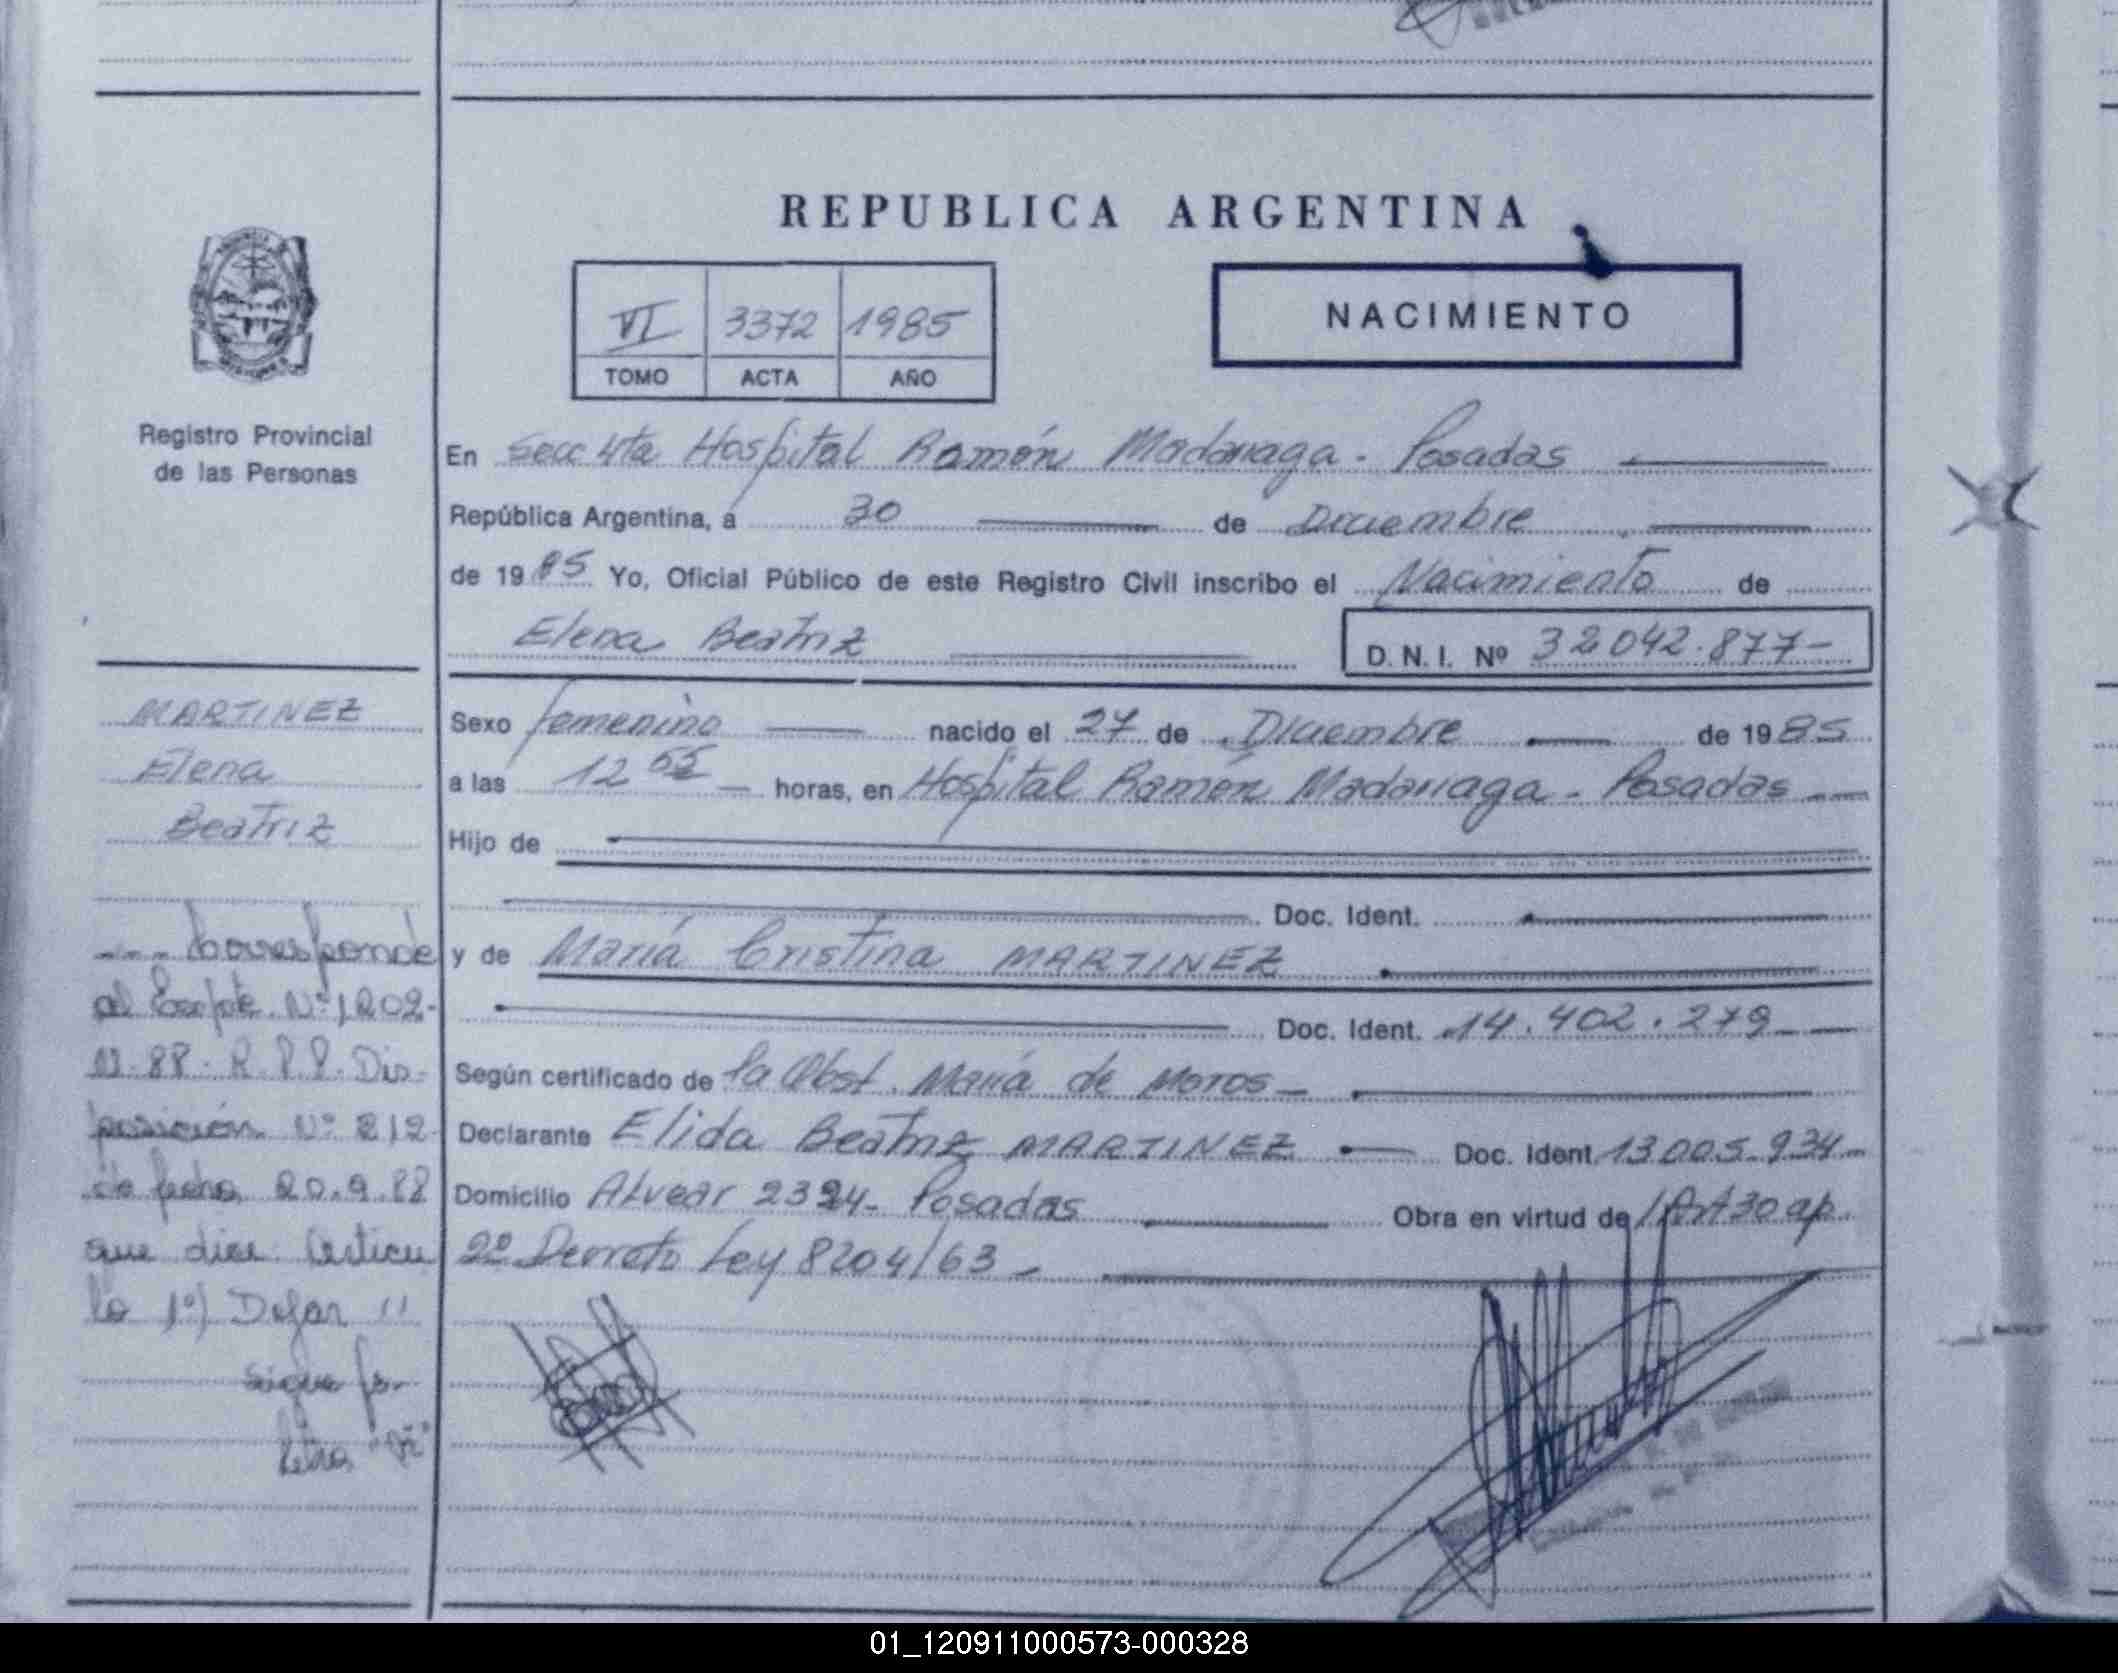 REPUBLICA ARGENTINA
VI 3372 1985
TOMO ACTA AÑO
NACIMIENTO
Registro Provincial
de las Personas
En Secc 4ta Hospital Ramón Madariaga - Posadas
República Argentina, a 30 de Diciembre
de 1985 Yo, Oficial Público de este Registro Civil inscribo el Nacimiento de
Elena Beatriz D.N.I. Nº 32042.877-
Sexo femenino nacido el 27 de Diciembre de 1985
a las 12 55 horas, en Hospital Ramón Madariaga - Posadas
Hijo de
Doc. Ident.
y de María Cristina MARTINEZ
Doc. Ident. 14.402.279
Según certificado de la Obst. María de Moros
Declarante Elida Beatriz MARTINEZ Doc. Ident. 13.005.934
Domicilio Alvear 2324- Posadas Obra en virtud de Art 30 ap.
2º Decreto Ley 8204/63 -
MARTINEZ
Elena
Beatriz
Corresponde
al Expte. Nº 1202-
88. R.P.P. Dis-
posición Nº 212
de fecha 20.9.88
que dice: Articu
lo 1º) Dejar
sigue
letra
01_120911000573-000328